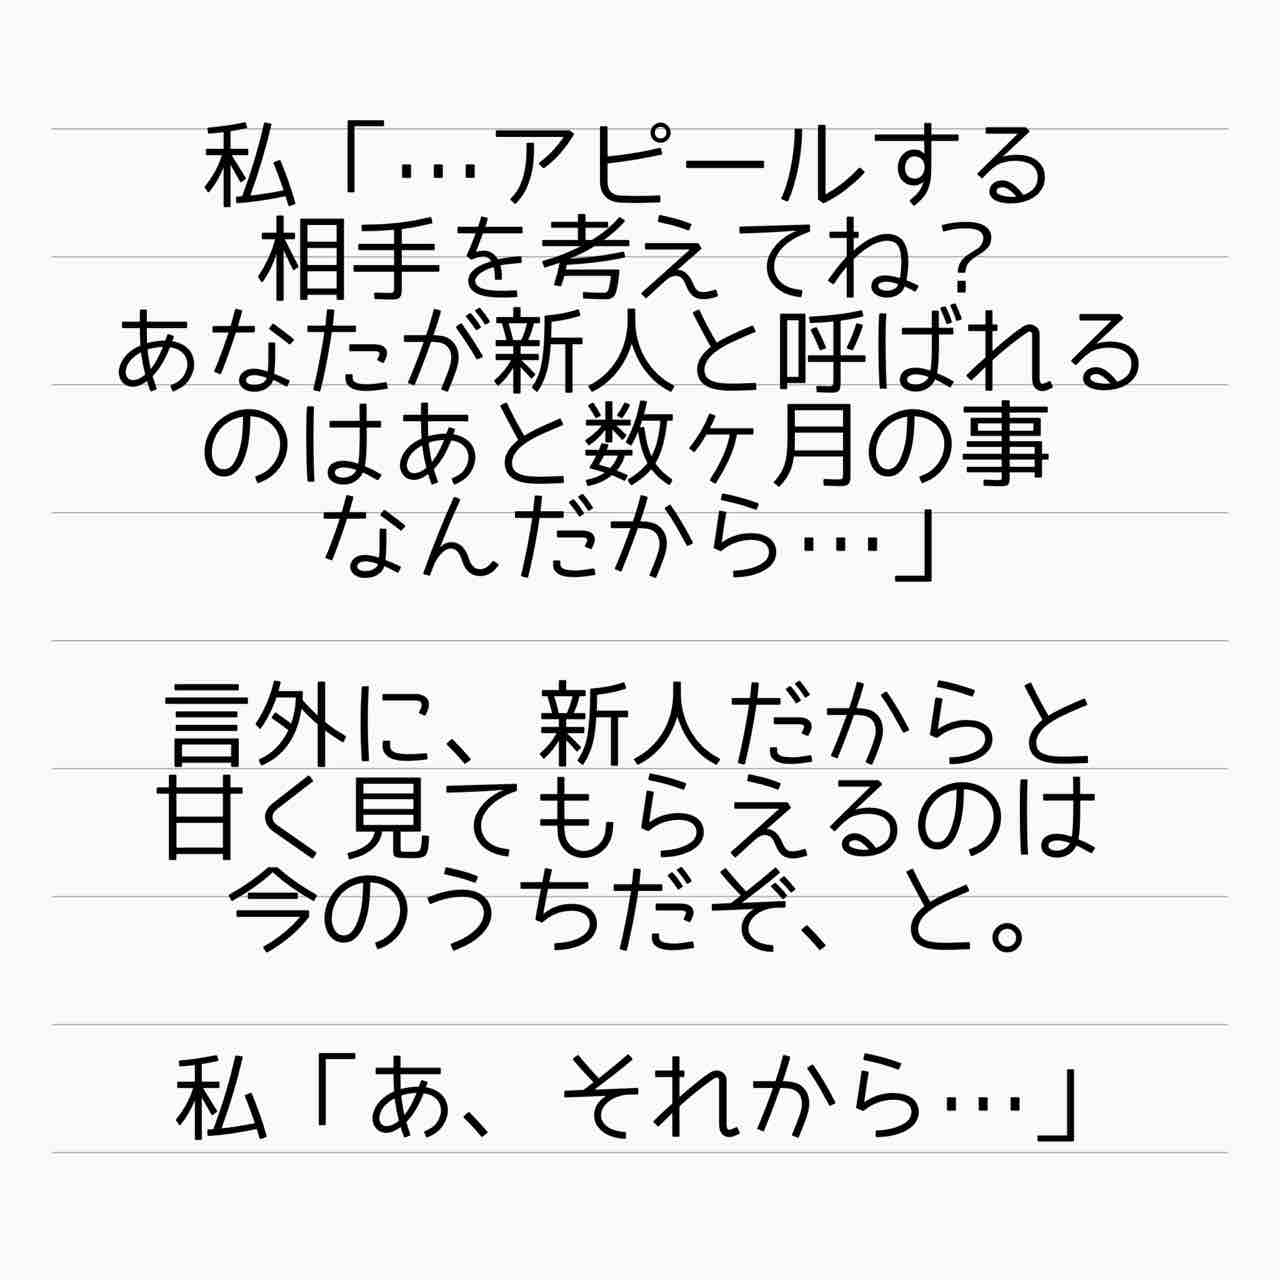 私「…アピールする
相手を考えてね？
あなたが新人と呼ばれる
のはあと数ヶ月の事
なんだから…」
言外に、新人だからと
甘く見てもらえるのは
今のうちだぞ、と。
私「あ、それから…」